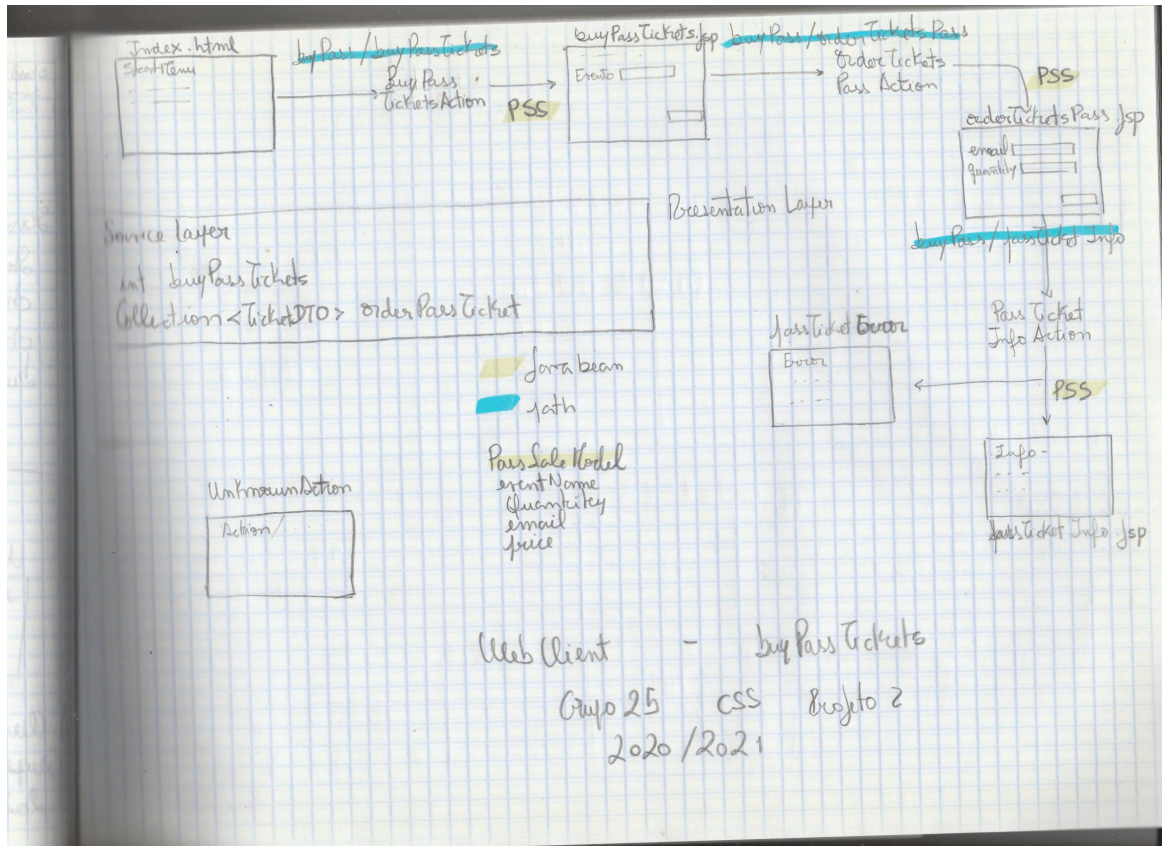 Index.html
buyPass/buyPassTickets
BuyPass
TicketsAction
PSS
buyPassTickets.jsp
Evento
buyPass/orderTicketsPass
OrderTickets
Pass Action
PSS
orderTicketsPass.jsp
email
quantity
Presentation Layer
Service layer
int buyPassTickets
Collection<TicketDTO> orderPassTicket
buyPass/passTicket Info
Pass Ticket
Info Action
passTicket Error
Error
PSS
Java bean
path
Info -
passTicket Info.jsp
PassSaleModel
eventName
Quantitey
email
price
UnknownAction
Action
Web Client - buyPassTickets
Grupo 25 CSS Projeto 2
2020/2021